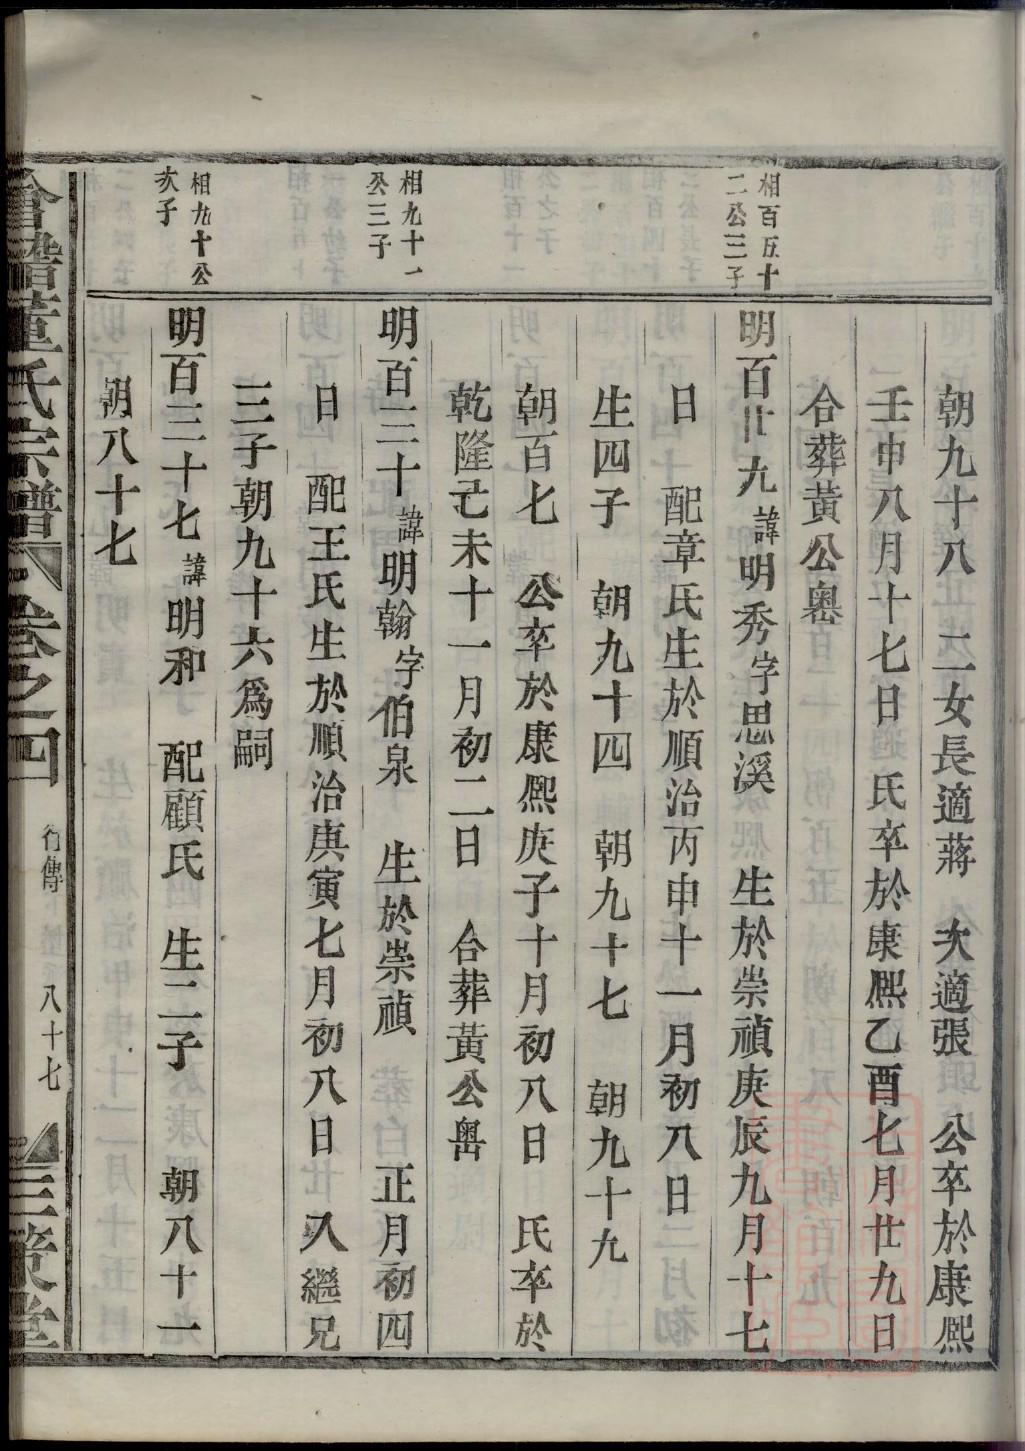 朝九十八　二女長適蔣　次適張　公卒於康熙
壬申八月十七日　氏卒於康熙乙酉七月廿九日
合葬黃公嶴
相百五十
二公三子
明百廿九諱明秀字思溪　生於崇禎庚辰九月十七
日　配章氏生於順治丙申十一月初八日
生四子　朝九十四　朝九十七　朝九十九
朝百七　公卒於康熙庚子十月初八日　氏卒於
乾隆己未十一月初二日　合葬黃公嶴
相九十一
公三子
明百三十諱明翰字伯泉　生於崇禎　正月初四
日　配王氏生於順治庚寅七月初八日　入繼兄
三子朝九十六爲嗣
相九十公
次子
明百三十七諱明和　配顧氏　生二子　朝八十一
朝八十七
會稽董氏宗譜　卷之四　行傳　八十七　三策堂